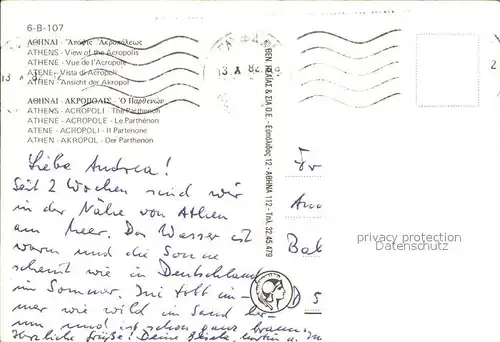 6-B-107
ΑΘΗΝΑΙ - Ἄποψις Ἀκροπόλεως
ATHENS - View of the Acropolis
ATHENE - Vue de l'Acropole
ATENE - Vista di Acropoli
ATHEN - Ansicht der Akropol
ΑΘΗΝΑΙ - ΑΚΡΟΠΟΛΙΣ - Ὁ Παρθενών
ATHENS - ACROPOLI - The Parthenon
ATHENE - ACROPOLE - Le Parthénon
ATENE - ACROPOLI - Il Partenone
ATHEN - AKROPOL - Der Parthenon
13. X 82
ΣΙΑ Ο.Ε. - Εὐπόλιδος 12 - ΑΘΗΝΑ 112 - Τηλ. 32.45.479
Liebe Andrea!
Seit 2 Wochen sind wir
in der Nähe von Athen
am Meer. Das Wasser ist
warm und die Sonne
scheint wie in Deutschland
im Sommer. Ini tobt im-
mer wie wild im Sand her-
um und ist schon ganz braun.
Herzliche Grüße! Deine
Fr
An
Bal
D 5
privacy protection
Datenschutz